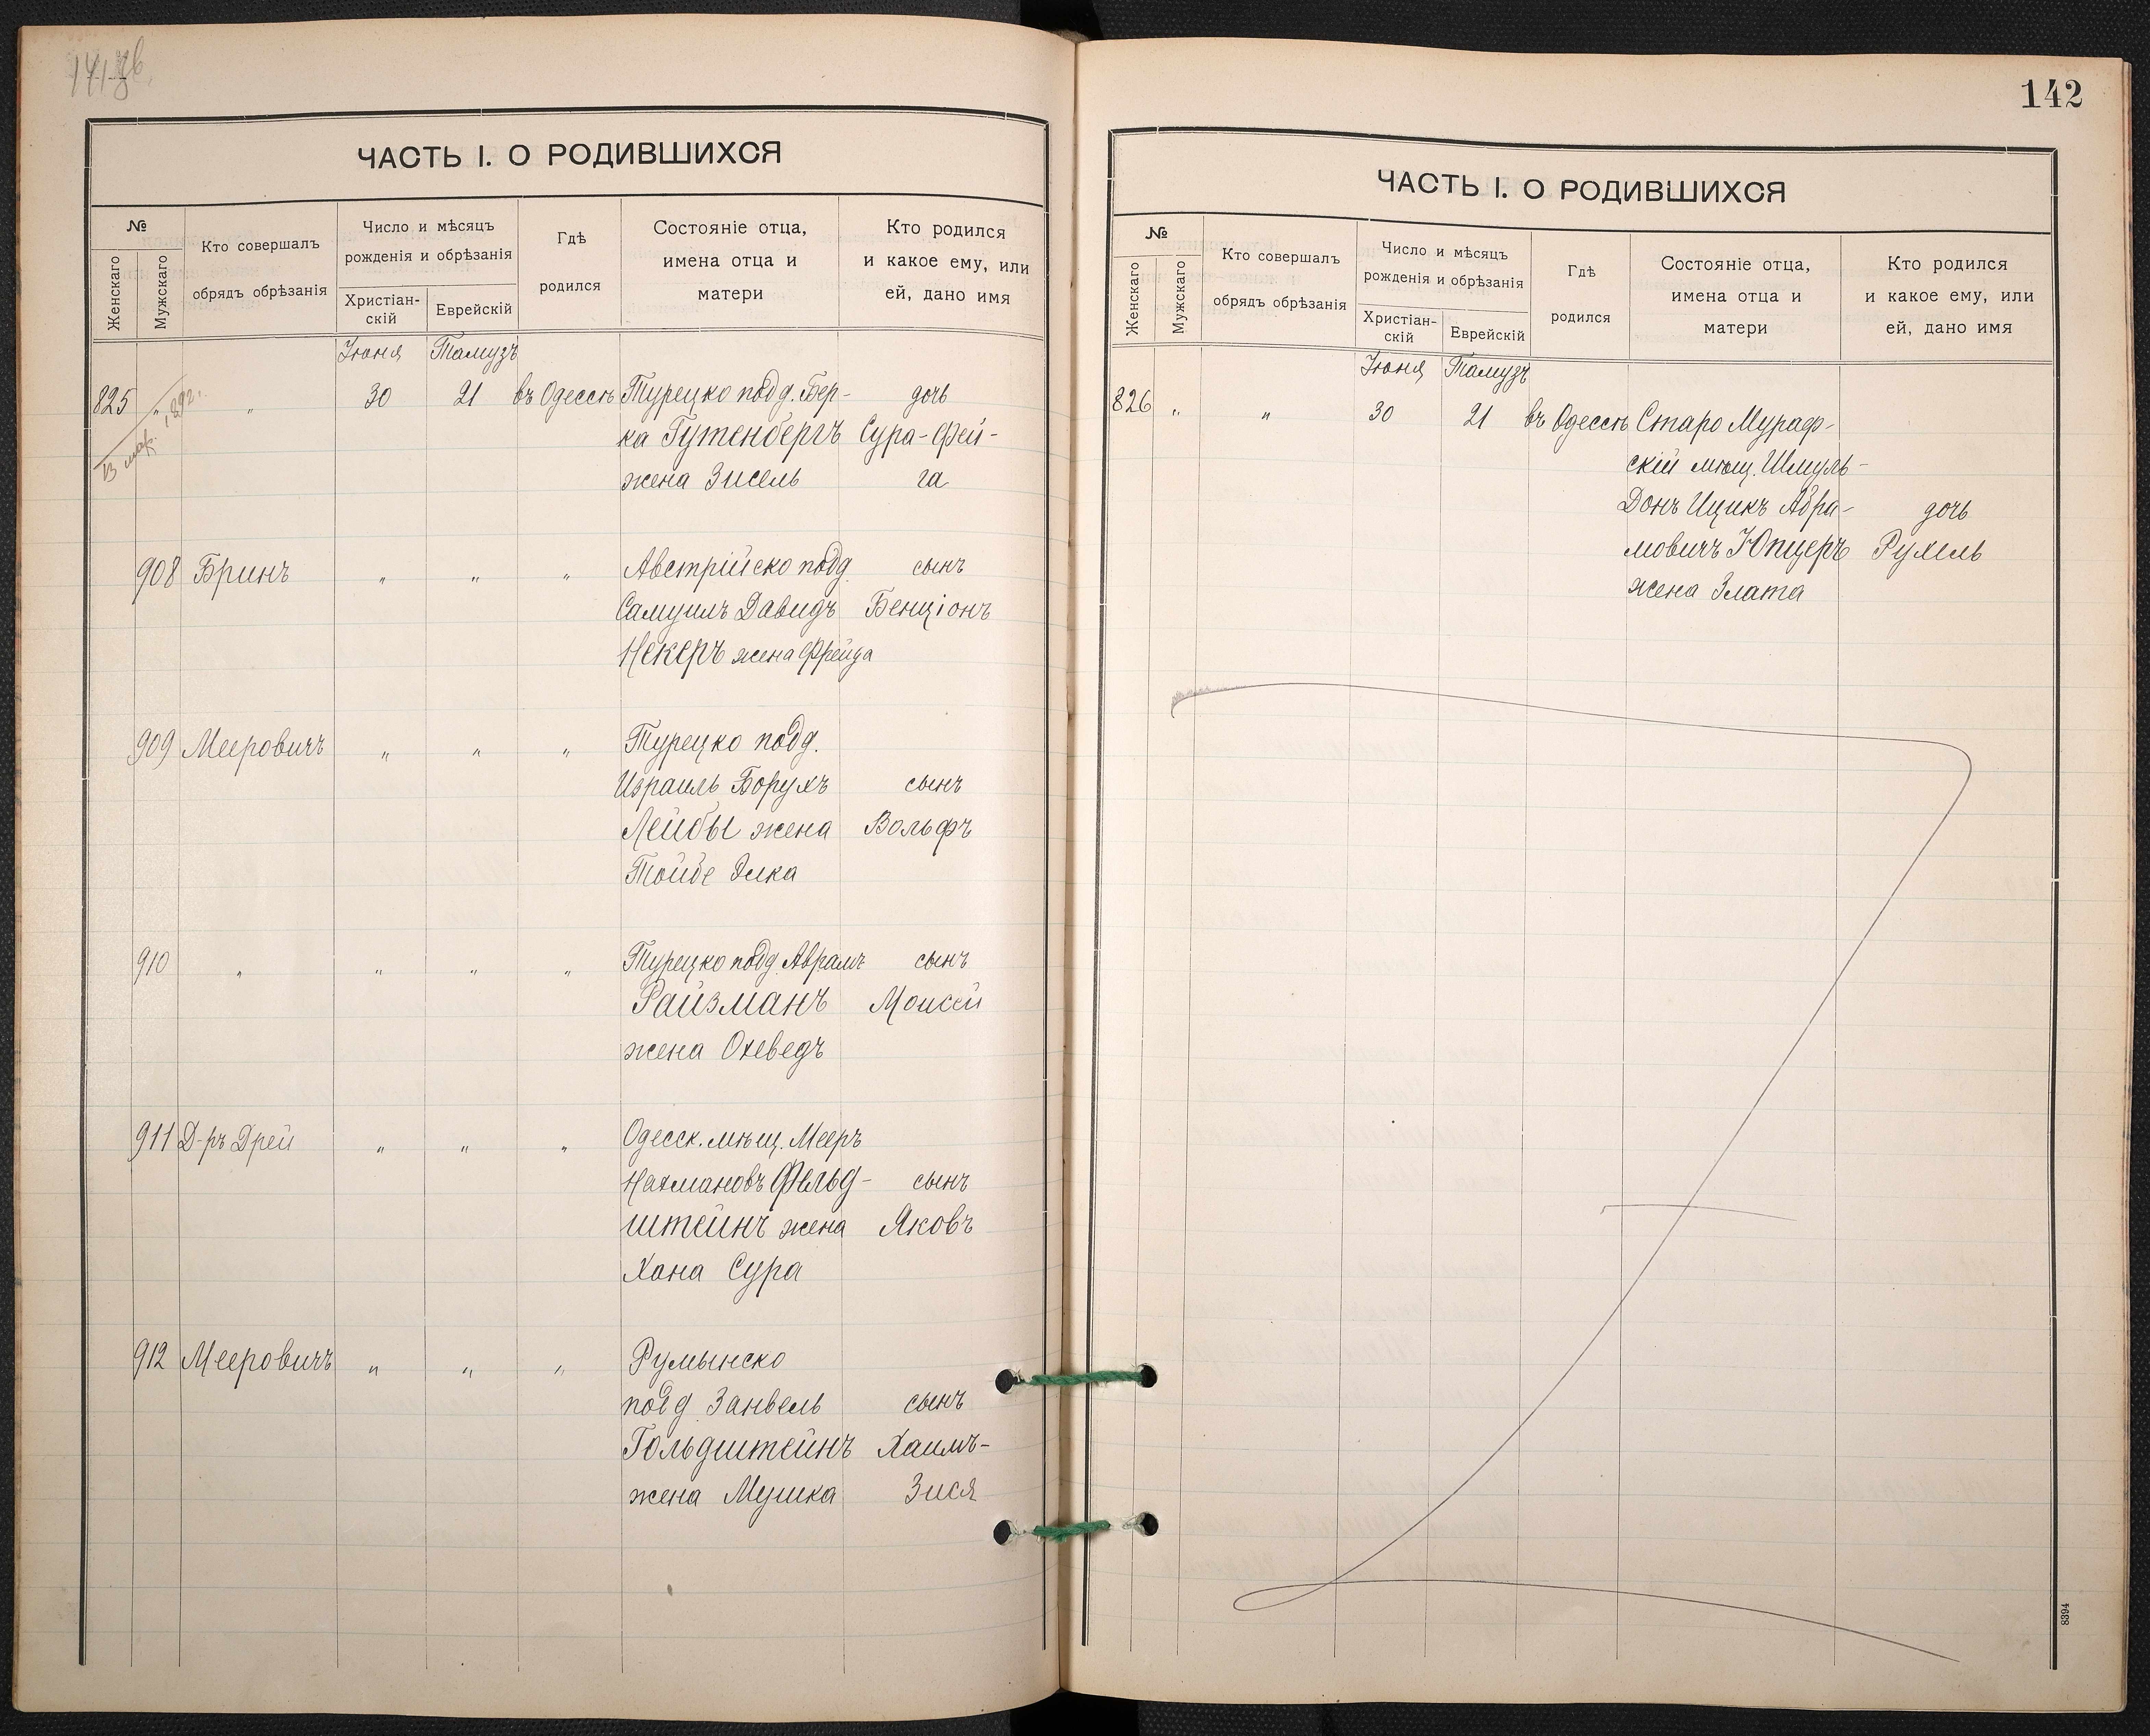 141 зв.
ЧАСТЬ I. О РОДИВШИХСЯ
№
Женскаго
Мужскаго
Кто совершалъ
обрядъ обрѣзанія
Число и мѣсяцъ
рожденія и обрѣзанія
Христіан-
скій
Еврейскій
Гдѣ
родился
Состояніе отца,
имена отца и
матери
Кто родился
и какое ему, или
ей, дано имя
Іюня Тамузъ
825 " " 30 21 въ Одессѣ Турецко подд. Бер- дочь
ка Гутенбергъ Сура-Фей-
жена Зисель га
908 Бринъ " " " Австрійско подд. сынъ
Самуилъ Давидъ Бенціонъ
Некеръ жена Фрейда
909 Мееровичъ " " " Турецко подд.
Израиль Борухъ сынъ
Лейбы жена Вольфъ
Тойбе Элка
910 " " " " Турецко подд. Аврамъ сынъ
Райзманъ Моисей
жена Охеведъ
911 Д-ръ Дрей " " " Одесск. мѣщ. Мееръ
Нахмановъ Фельд- сынъ
штейнъ жена Яковъ
Хана Сура
912 Мееровичъ " " " Румынско
подд. Занвель сынъ
Гольдштейнъ Хаимъ-
жена Мушка Зися
142
ЧАСТЬ I. О РОДИВШИХСЯ
№
Женскаго
Мужскаго
Кто совершалъ
обрядъ обрѣзанія
Число и мѣсяцъ
рожденія и обрѣзанія
Христіан-
скій
Еврейскій
Гдѣ
родился
Состояніе отца,
имена отца и
матери
Кто родился
и какое ему, или
ей, дано имя
Іюня Тамузъ
826 " " 30 21 въ Одессѣ Старо Мураф-
скій мѣщ. Шмуль-
Донъ Ицикъ Абра- дочь
мовичъ Юпцеръ Рухель
жена Злата
8394